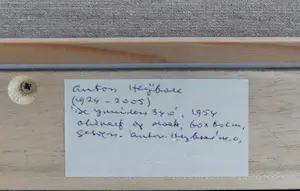 Anton Heyboer
(1924 - 2005)
'de Ymuiden 340', 1954
olieverf op doek, 60x80cm,
gesign. 'anton heyboer' r.o.